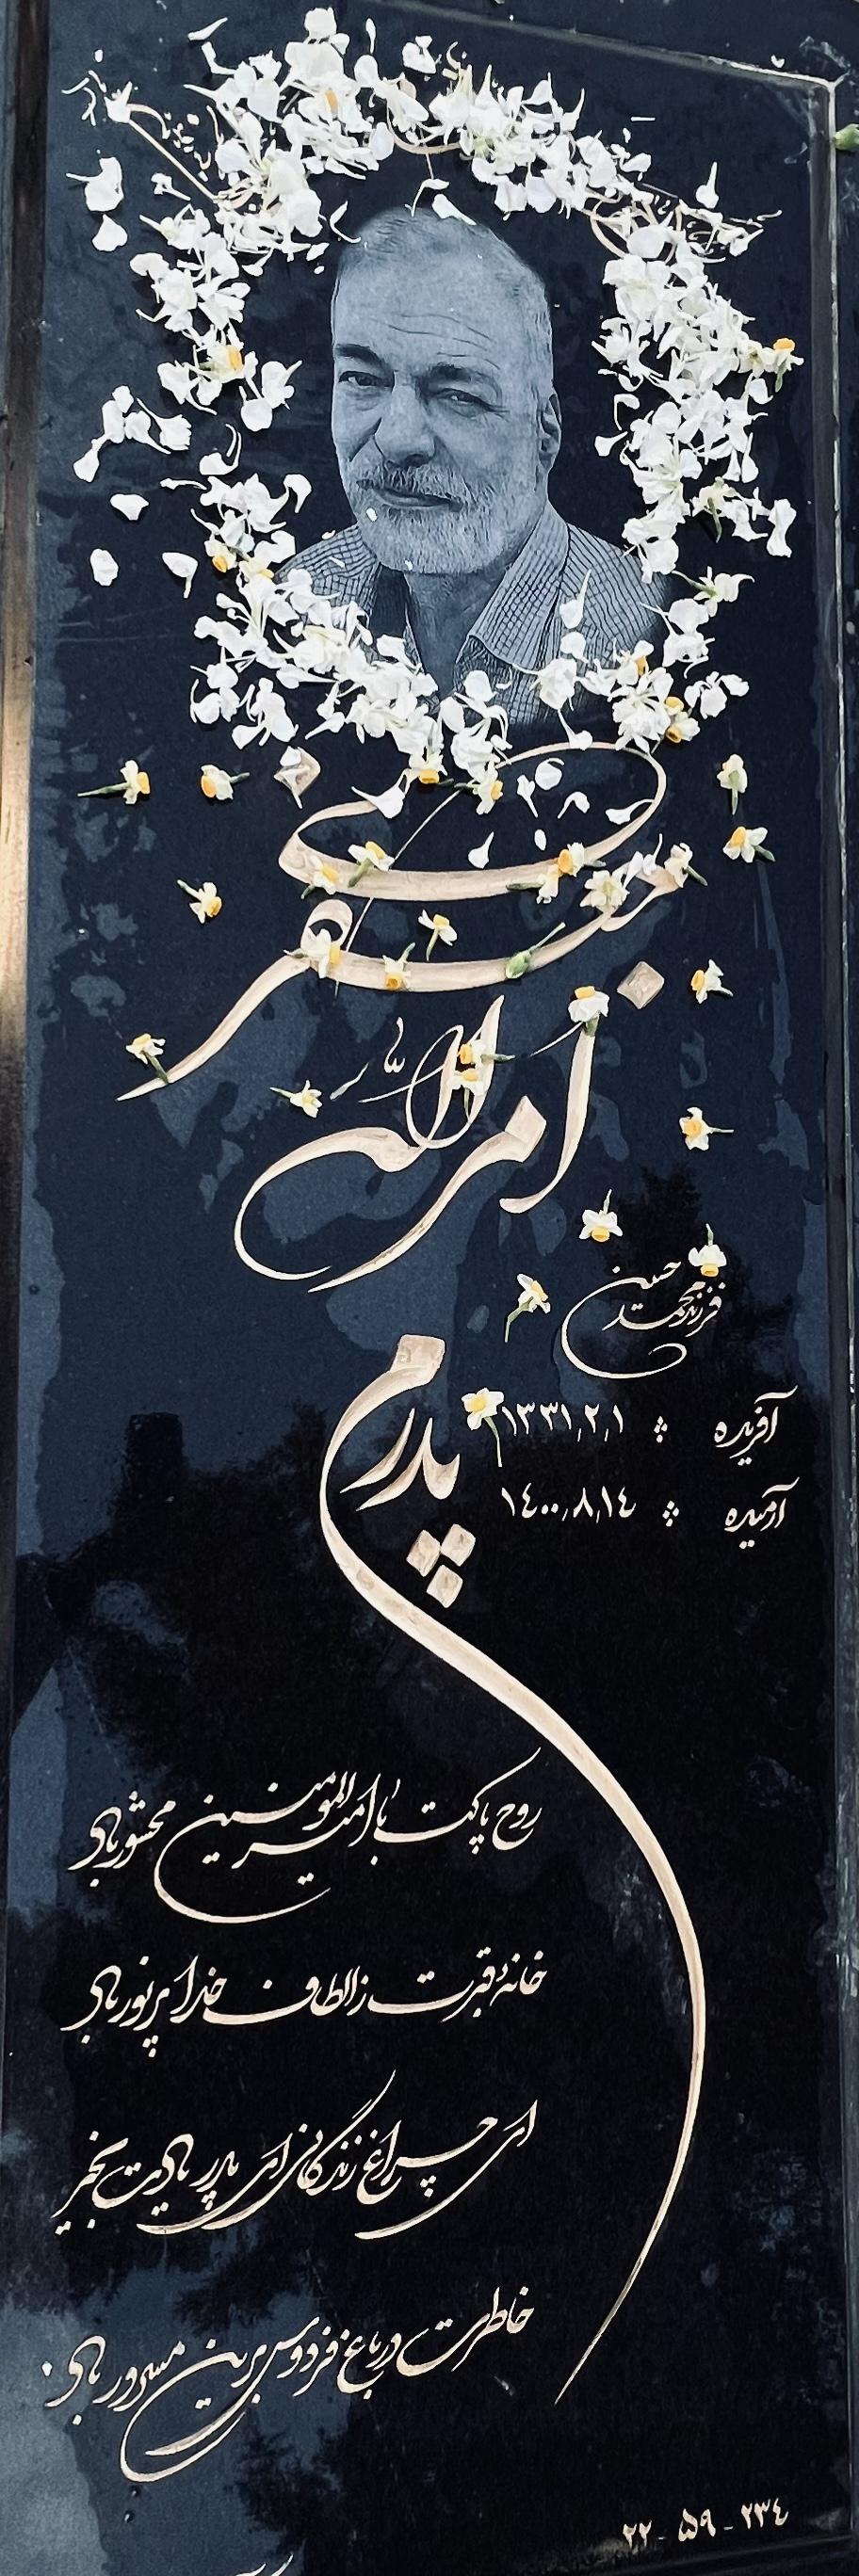 امراله
فرزند محمدحسین
آفریده ۱۳۳۱,۲,۱
آرمیده ۱٤۰۰,۸,۱٤
پدرم
روح پاکت با امیرالمومنین محشور باد
خانه قبرت ز الطاف خدا پر نور باد
ای چراغ زندگانی ای پدر یادت بخیر
خاطرت در باغ فردوس برین مسرور باد
۲۳٤ - ۵۹ - ۲۲